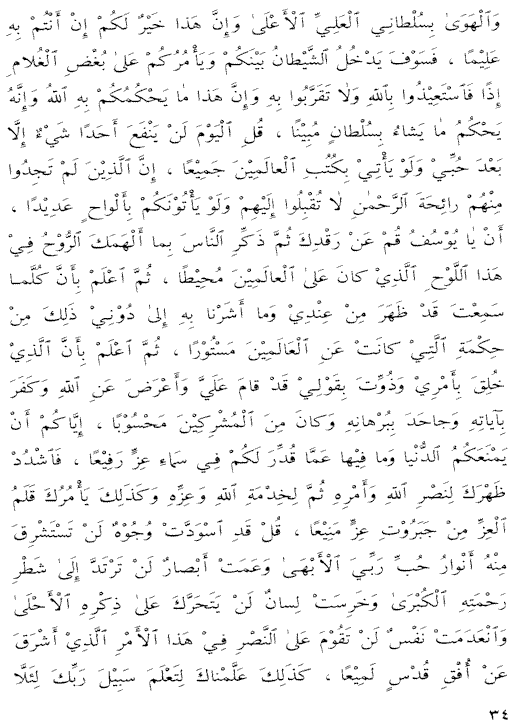 وَٱلْهَوَىٰ بِسُلْطَانِي ٱلْعَلِيِّ ٱلْأَعْلَىٰ وَإِنَّ هَذَا خَيْرٌ لَكُمْ إِنْ أَنْتُمْ بِهِ
عَلِيْمًا ، فَسَوْفَ يَدْخُلُ ٱلشَّيْطَانُ بَيْنَكُمْ وَيَأْمُرُكُمْ عَلَىٰ بُغْضِ ٱلْغُلَامِ
إِذًا فَٱسْتَعِيْذُوا بِٱللّٰهِ وَلَا تَقَرَّبُوا بِهِ وَإِنَّ هَذَا مَا يَحْكُمُكُمْ بِهِ ٱللّٰهُ وَإِنَّهُ
يَحْكُمُ مَا يَشَاءُ بِسُلْطَانٍ مُبِيْنًا ، قُلِ ٱلْيَوْمَ لَنْ يَنْفَعَ أَحَدًا شَيْءٌ إِلَّا
بَعْدَ حُبِّيْ وَلَوْ يَأْتِيْ بِكُتُبِ ٱلْعَالَمِيْنَ جَمِيْعًا ، إِنَّ ٱلَّذِيْنَ لَمْ تَجِدُوا
مِنْهُمْ رَائِحَةَ ٱلرَّحْمٰنِ لَا تُقْبِلُوا إِلَيْهِمْ وَلَوْ يَأْتُوْنَكُمْ بِأَلْوَاحٍ عَدِيْدًا ،
أَنْ يَا يُوْسُفُ قُمْ عَنْ رَقْدِكَ ثُمَّ ذَكِّرِ ٱلنَّاسَ بِمَا أَلْهَمَكَ ٱلرُّوْحُ فِيْ
هَذَا ٱللَّوْحِ ٱلَّذِيْ كَانَ عَلَىٰ ٱلْعَالَمِيْنَ مُحِيْطًا ، ثُمَّ ٱعْلَمْ بِأَنَّ كُلَّمَا
سَمِعْتَ قَدْ ظَهَرَ مِنْ عِنْدِيْ وَمَا أَشَرْنَا بِهِ إِلَىٰ دُوْنِيْ ذَلِكَ مِنْ
حِكْمَةِ ٱلَّتِيْ كَانَتْ عَنِ ٱلْعَالَمِيْنَ مَسْتُوْرًا ، ثُمَّ ٱعْلَمْ بِأَنَّ ٱلَّذِيْ
خُلِقَ بِأَمْرِيْ وَذُوِّتَ بِقَوْلِيْ قَدْ قَامَ عَلَيَّ وَأَعْرَضَ عَنِ ٱللّٰهِ وَكَفَرَ
بِآيَاتِهِ وَجَاحَدَ بِبُرْهَانِهِ وَكَانَ مِنَ ٱلْمُشْرِكِيْنَ مَحْسُوْبًا ، إِيَّاكُمْ أَنْ
يَمْنَعَكُمُ ٱلدُّنْيَا وَمَا فِيْهَا عَمَّا قُدِّرَ لَكُمْ فِي سَمَاءِ عِزٍّ رَفِيْعًا ، فَٱشْدُدْ
ظَهْرَكَ لِنَصْرِ ٱللّٰهِ وَأَمْرِهِ ثُمَّ لِخِدْمَةِ ٱللّٰهِ وَعِزِّهِ وَكَذَلِكَ يَأْمُرُكَ قَلَمُ
ٱلْعِزِّ مِنْ جَبَرُوْتِ عِزٍّ مَنِيْعًا ، قُلْ قَدِ ٱسْوَدَّتْ وُجُوْهٌ لَنْ تَسْتَشْرِقَ
مِنْهُ أَنْوَارُ حُبِّ رَبِّيَ ٱلْأَبْهَىٰ وَعَمَتْ أَبْصَارٌ لَنْ تَرْتَدَّ إِلَىٰ شَطْرِ
رَحْمَتِهِ ٱلْكُبْرَىٰ وَخَرِسَتْ لِسَانٌ لَنْ يَتَحَرَّكَ عَلَىٰ ذِكْرِهِ ٱلْأَحْلَىٰ
وَٱنْعَدَمَتْ نَفْسٌ لَنْ تَقُوْمَ عَلَىٰ ٱلنَّصْرِ فِيْ هَذَا ٱلْأَمْرِ ٱلَّذِيْ أَشْرَقَ
عَنْ أُفُقِ قُدْسٍ لَمِيْعًا ، كَذَلِكَ عَلَّمْنَاكَ لِتَعْلَمَ سَبِيْلَ رَبِّكَ لِئَلَّا
٣٤